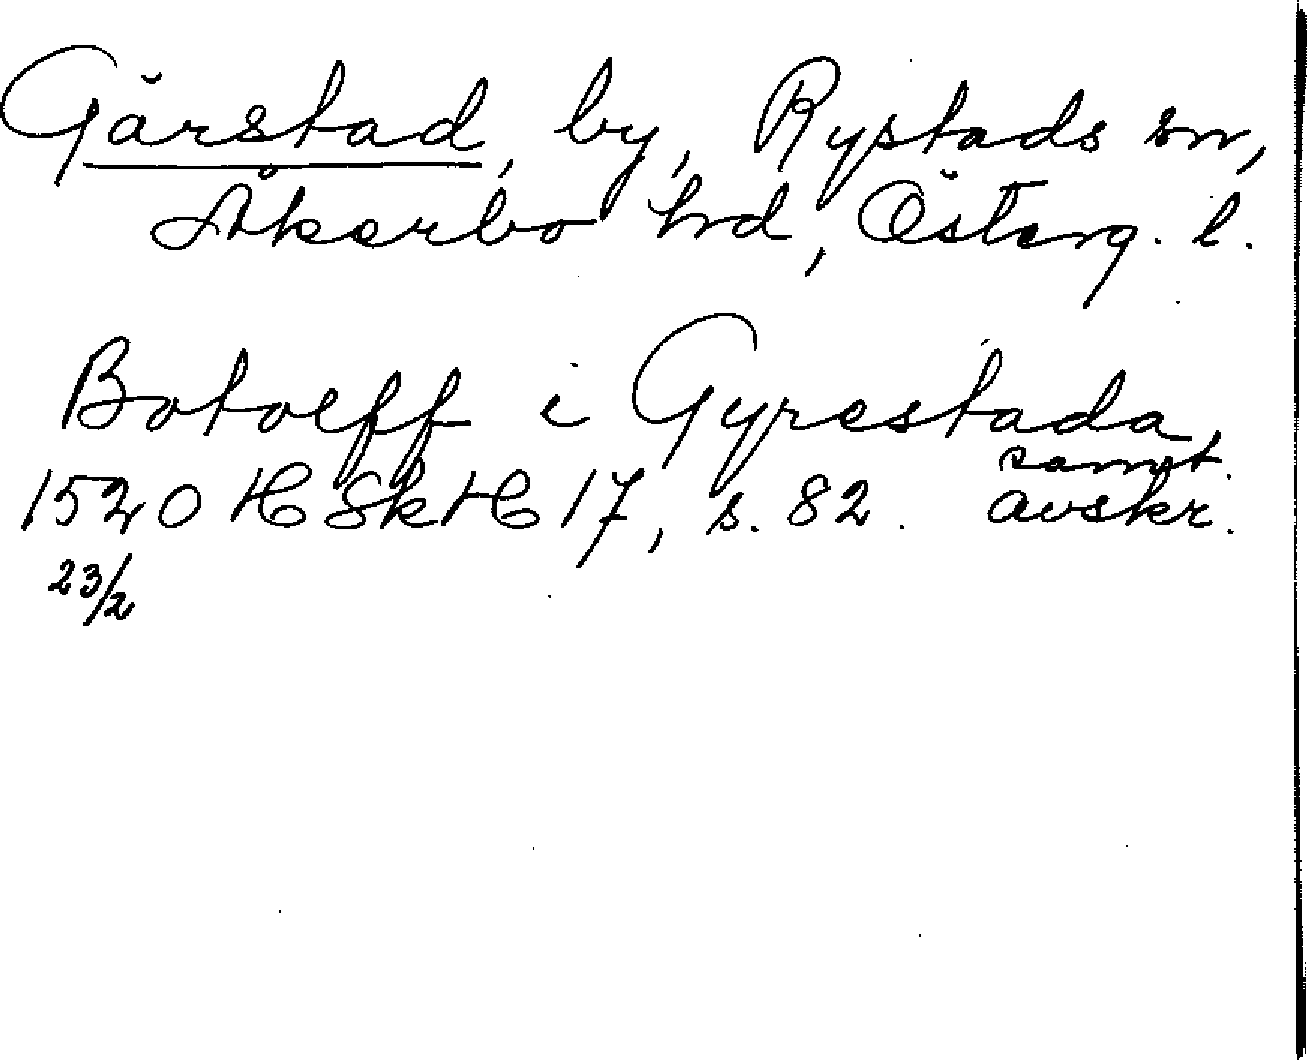 Gärstad, by, Rystads sn,
Åkerbo hd, Österg. l.
Botolff i Gyrestada,
1520 HSkH 17, s. 82. samt. avskr.
23/2